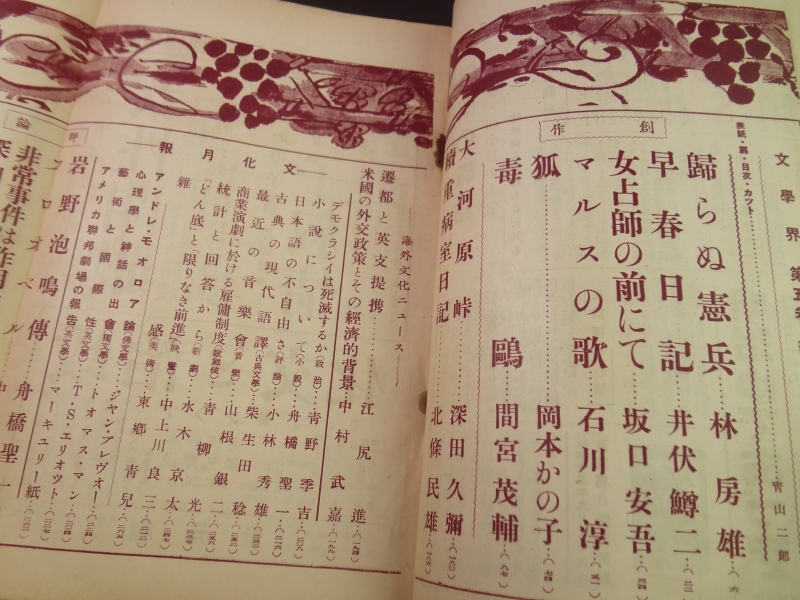 文學界 第五
表紙・扉・目次・カット……靑山二郎
創作
歸らぬ憲兵……林房雄…(六)
早春日記……井伏鱒二…(二二)
女占師の前にて……坂口安吾…(三四)
マルスの歌……石川淳…(五一)
狐……岡本かの子…(七四)
毒鷗……間宮茂輔…(八七)
大河原峠……深田久彌…(一六〇)
續重病室日記……北條民雄…(一八六)
海外文化ニュース
遷都と英支提携……江尻進…(一九四)
米國の外交政策とその經濟的背景…中村武嘉…(一九九)
文化月報
デモクラシイは死滅するか(政治)…靑野季吉…(二〇八)
小說について(小說)…舟橋聖一…(二一六)
日本語の不自由さ(評論)…小林秀雄
古典の現代語譯(古典文學)…柴生田稔
最近の音樂會(音樂)…山根銀二
商業演劇に於ける雇傭制度(歌舞伎)…靑柳
統計と回答から(新劇)…水木京太
「どん底」と限りなき前進(映畫)…中上川良三
雜感(美術)…東鄕靑兒
アンドレ・モオロア論(佛文學)…ジャン・プレヴォー
心理學と神話の出會(獨文學)…トオマス・マン
藝術と國際性(英文學)…T・S・エリオット
アメリカ聯邦劇場の報告(英文學)…マーキュリー紙
評論
岩野泡鳴傳…舟橋聖一
フロオベル
非常事件は作用